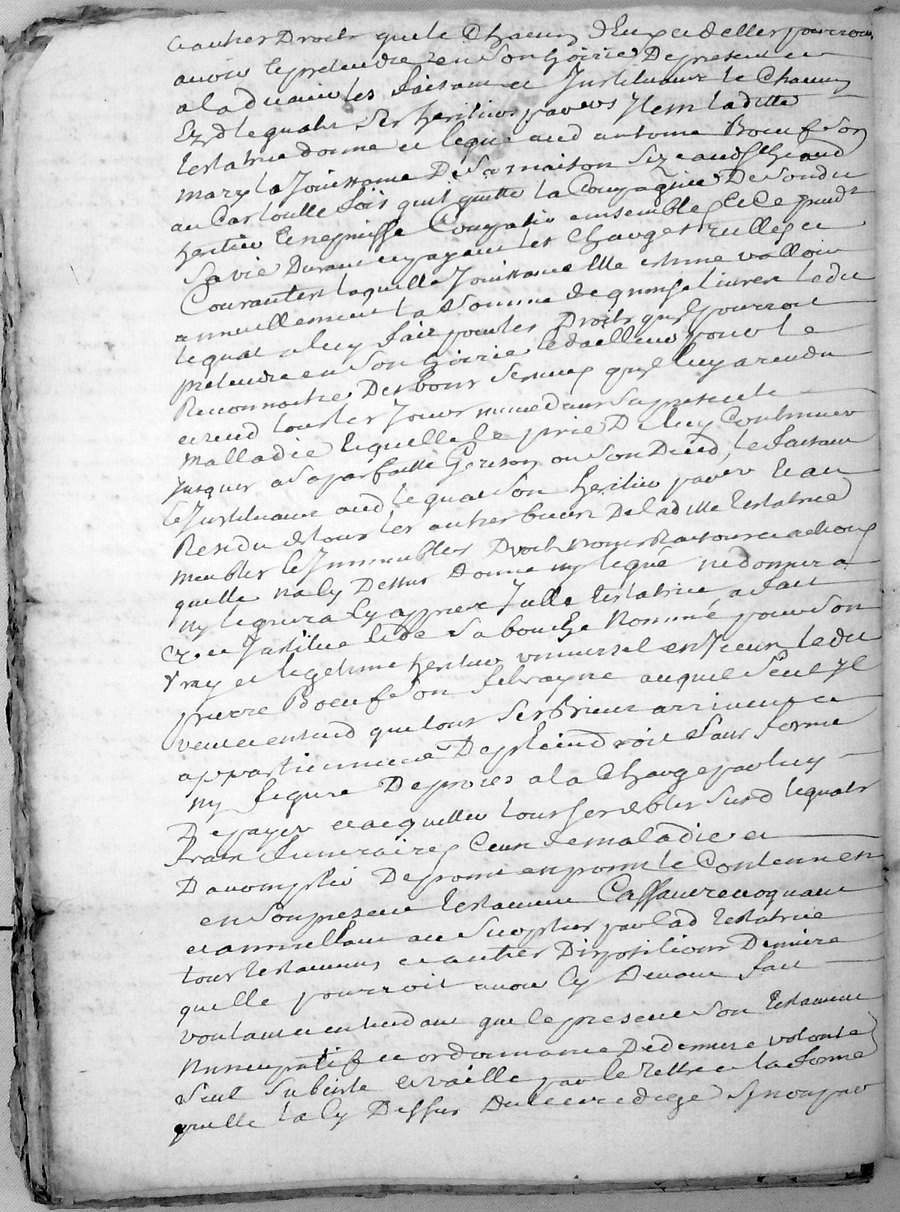 et autres Droits que le Chacun d'Eux et delles pourroit
avoir et pretendre en Son hoirie De present et
a ladvenir les faisant et Instituant le Chacun
Endt legat Ses heritiers par vers Item laditte
testatrice donne et legue aud antoine Boeuf Son
mary la Jouissance De Sa maison Size aud
au Cartoulle fois quil quitte la Compagnie De Sondit
heritier Et ne puisse Compatir ensemble Et Ce pendt
Sa vie Durant en payant les Charges tailles et
Courantes laquelle Jouissance Elle estime valloir
annuellement la Somme de quinse livres ledit
legat a luy fait pour les Droits quil pourroit
pretendre en Son hoirie et dailleurs pour le
Reconnoitre Des bons Services quil luy a rendu
et rend tous les Jours meme dans Sa presente
malladie lequelle le prie De luy Continuer
Jusques a Sa parfaitte Gerison ou Son Deced, le faisant
et Instituant aud legat Son heritier par vers Et au
Residu de tous les autres biens De laditte testatrice
meubles et Immeubles Droits noms Raisons et actions
quelle na Cy Dessus Donne ny legué ne donnera
ny leguera Cy apprez Jcelle testatrice a fait
Crée et Institue Et de Sa bouche Nommé pour Son
Vray et legitime heritier universel Ent Icelui ledit
pierre Boeuf Son fils ayné auquel Seul Jl
veut et entend que tous Ses Biens arrivent et
appartiennent De plein droit Sans forme
ny figure De proces a la Charge par luy
De payer et acquitter tous Ses debtes Susd legats
frais funeraires Ceux de maladie et
Daccomplir De point en point le Contenu en
en Son present testament Cassant revoquant
et annullant au Surplus par lad testatrice
tous testaments et autres Dispositions Derniere
quelle pourroit avoir Cy Devant fait
voulant et entendant que le present Son testament
Nuncupatif et ordonnance De derniere volonté
Seul Subciste et vaille par la meilleure forme
quelle la Cy Dessus Sinon par